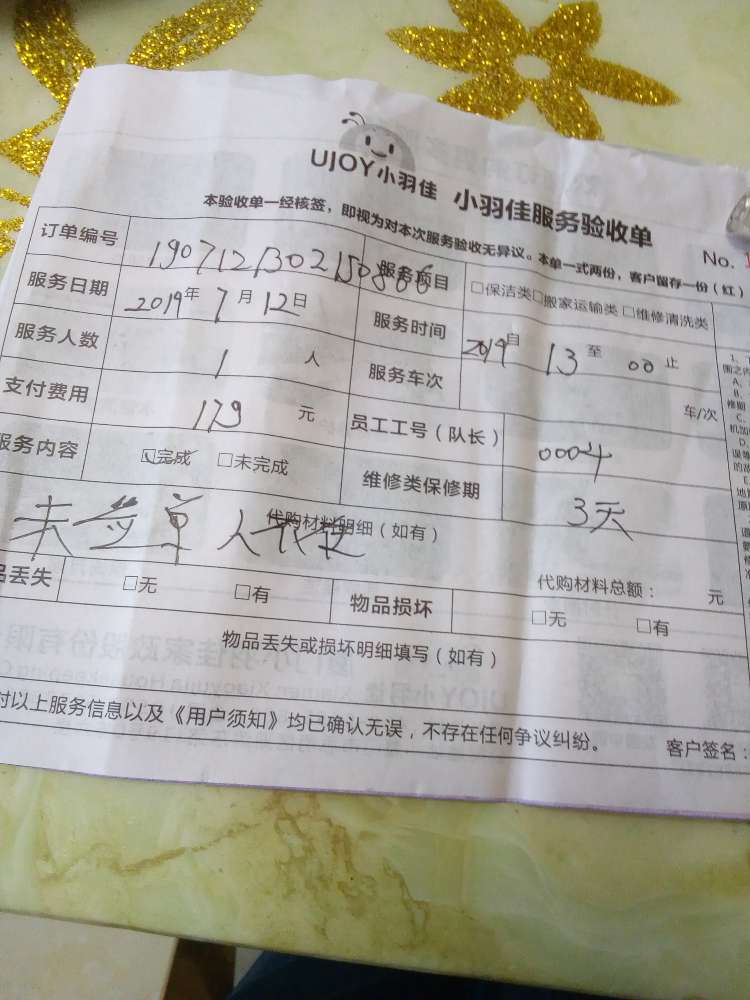 UJOY小羽佳 小羽佳服务验收单
本验收单一经核签，即视为对本次服务验收无异议。本单一式两份，客户留存一份（红）
No.
订单编号 服务项目 □保洁类□搬家运输类 □维修清洗类
服务日期 2019年 7月 12日 服务时间 2019 自 13 至 00 止
服务人数 1 人 服务车次 车/次
支付费用 179 元 员工工号（队长） 0004
服务内容 ☑完成 □未完成 维修类保修期 3天
代购材料明细（如有）
未签单人
代购材料总额： 元
品丢失 □无 □有 物品损坏 □无 □有
物品丢失或损坏明细填写（如有）
对以上服务信息以及《用户须知》均已确认无误，不存在任何争议纠纷。 客户签名：